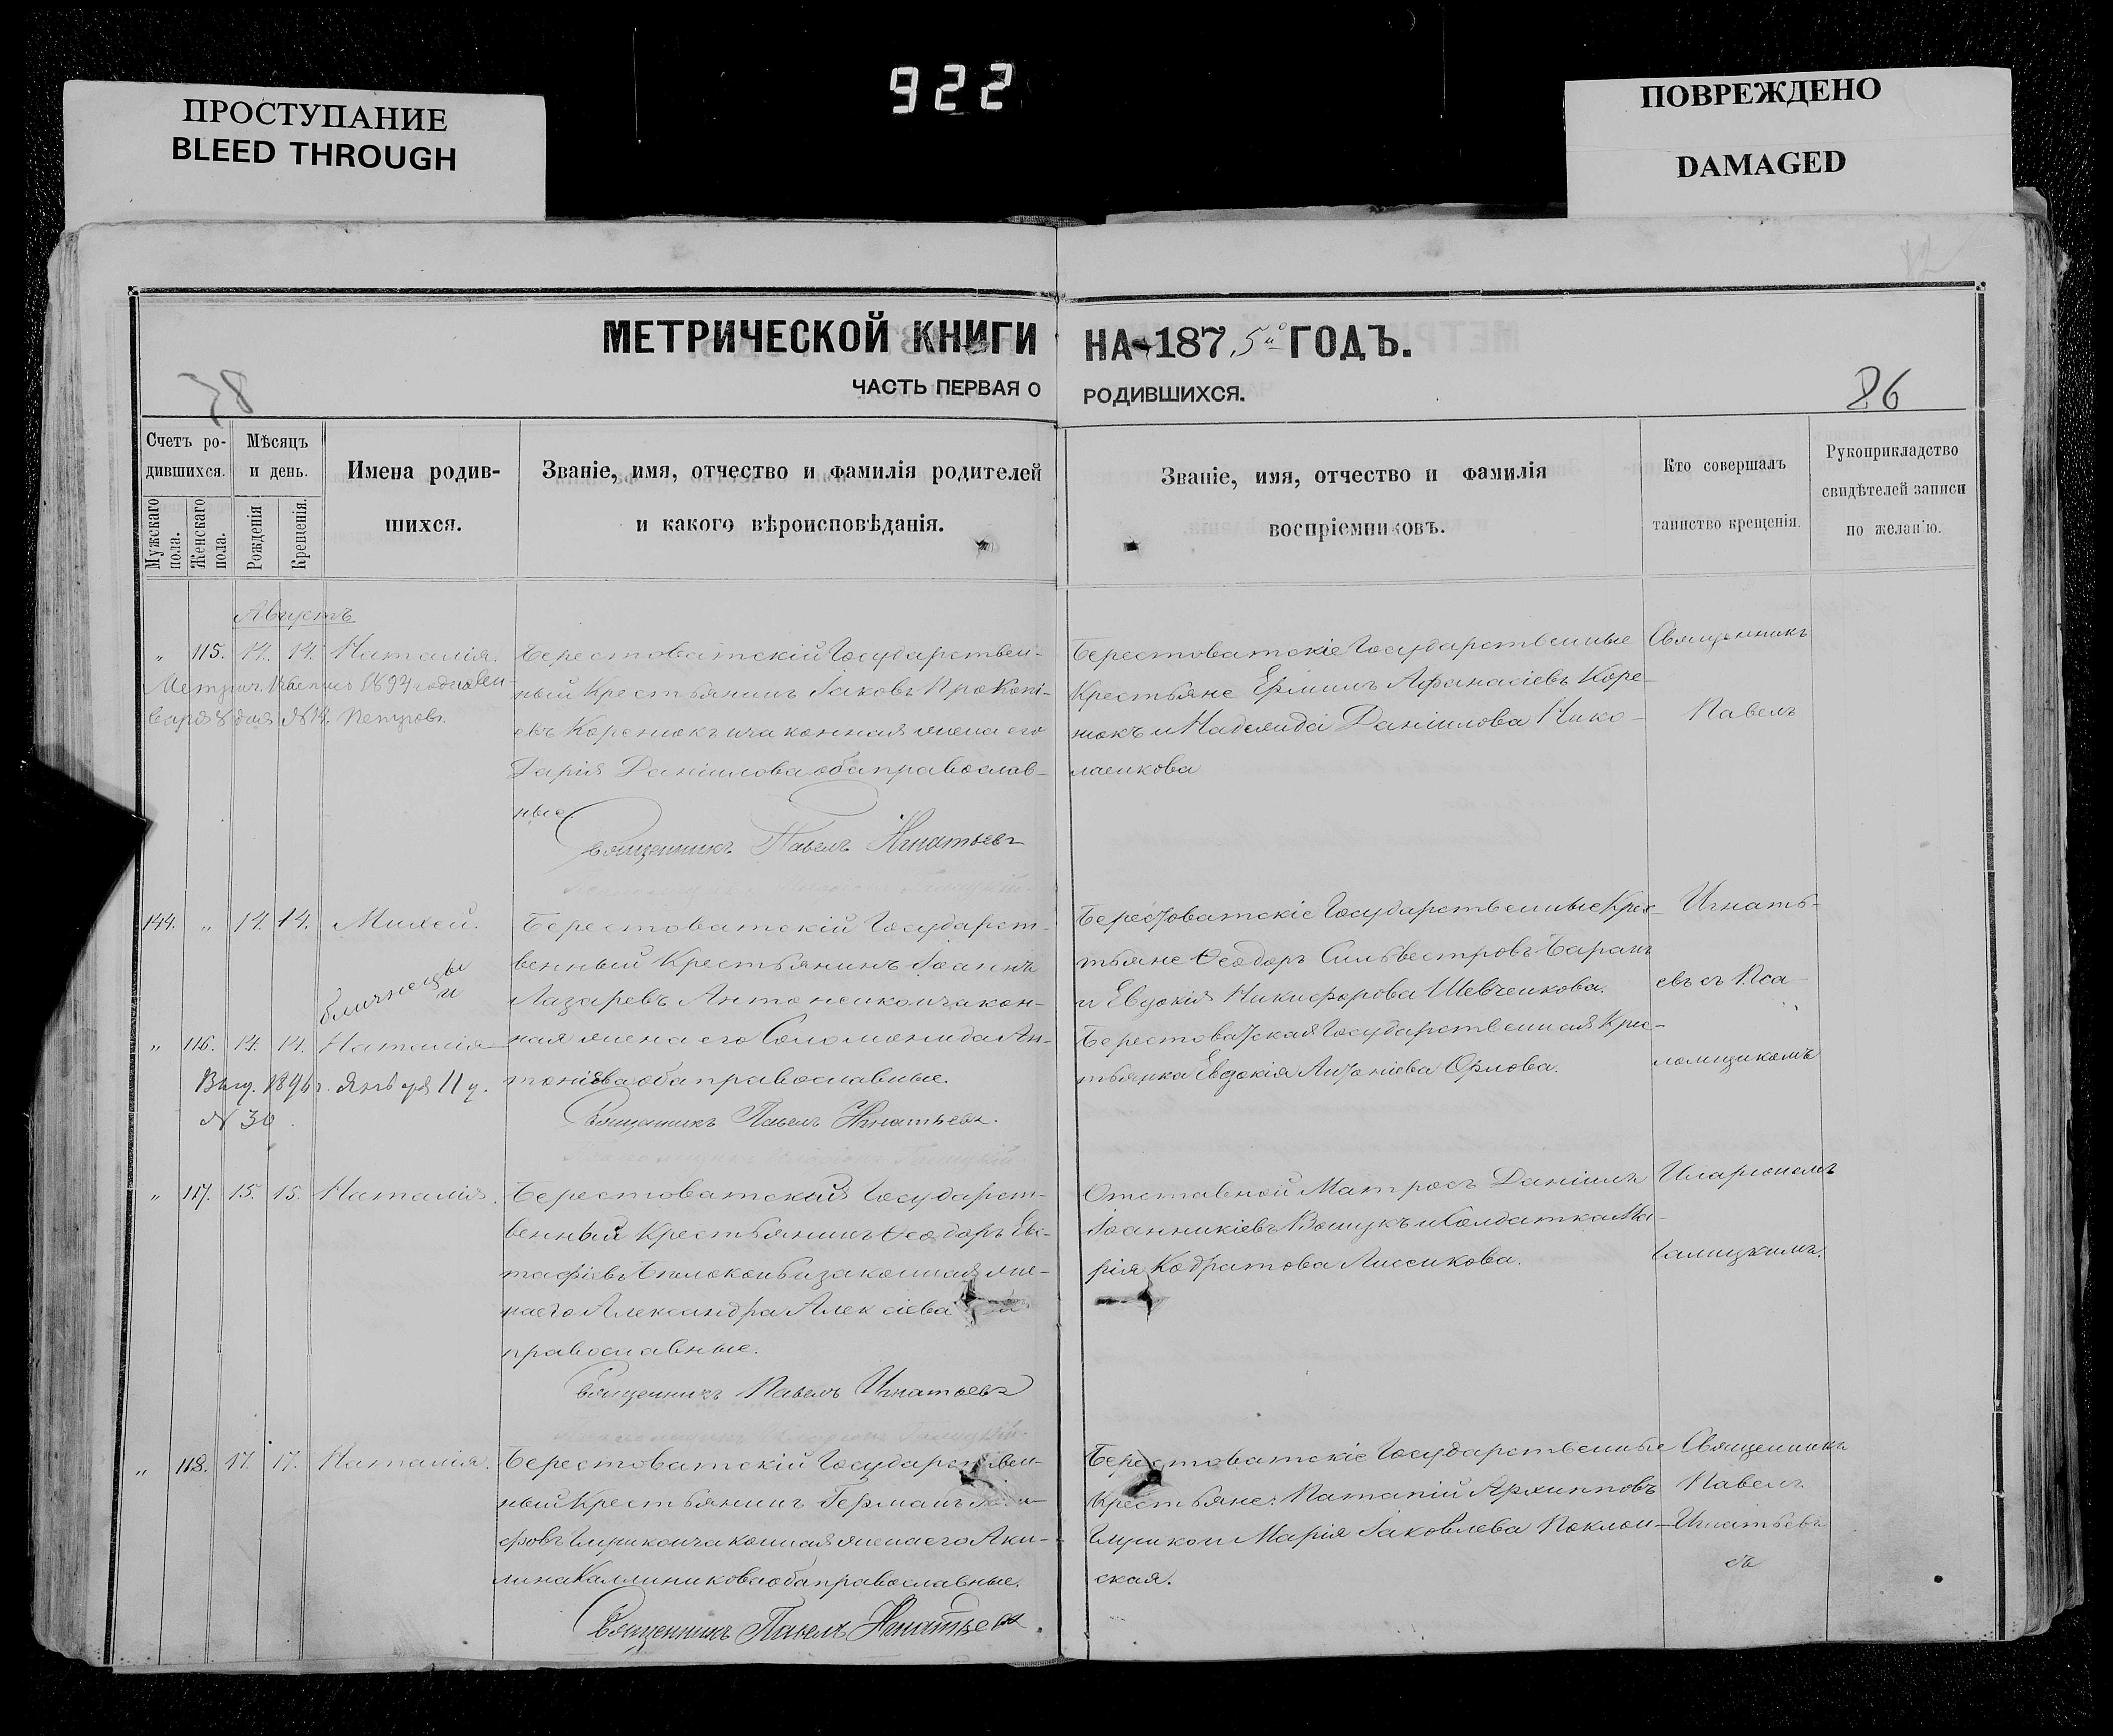 922
ПРОСТУПАНИЕ
BLEED THROUGH
ПОВРЕЖДЕНО
DAMAGED
МЕТРИЧЕСКОЙ КНИГИ НА 1875й ГОДЪ.
ЧАСТЬ ПЕРВАЯ О РОДИВШИХСЯ.
38
86
Счетъ ро-
дившихся.
Мужскаго пола.
Женскаго пола.
Мѣсяцъ
и день.
Рожденія
Крещенія.
Имена родив-
шихся.
Званіе, имя, отчество и фамилія родителей
и какого вѣроисповѣданія.
Званіе, имя, отчество и фамилія
воспріемниковъ.
Кто совершалъ
таинство крещенія.
Рукоприкладство
свидѣтелей записи
по желанію.
Августъ
„ 115. 14. 14. Наталія.
Берестоватскій Государствен-
ный Крестьянинъ Іаковъ Прокопі-
евъ Коренюкъ и законная жена его
Дарія Даніилова оба православ-
ные
Священникъ Павелъ Игнатьевъ
Берестоватскіе Государственные
Крестьяне Ермилъ Афанасіевъ Коре-
нюкъ и Надежда Даніилова Нико-
лаенкова
Священникъ
Павелъ
144. „ 14. 14. Михей.
близнецы
и
„ 116. 14. 14. Наталія
Выд. 1896 г. Января 11 д.
№ 30
Берестоватскій Государст-
венный Крестьянинъ Іоаннъ
Лазаревъ Антоненко и закон-
ная жена его Соломонида Ан-
тоніева оба православные.
Священникъ Павелъ Игнатьевъ.
Берестоватскіе Государственные Крес-
тьяне Ѳеодоръ Сильвестровъ Баранъ
и Евдокія Никифорова Шевченкова.
Берестоватская Государственная Крес-
тьянка Евдокія Антоніева Орлова.
Игнать-
евъ съ Пса-
ломщикомъ
„ 117. 15. 15. Наталія.
Берестоватскій Государст-
венный Крестьянинъ Ѳеодоръ Евс-
тафіевъ и законная же-
на его Александра Алексіева
православные.
Священникъ Павелъ Игнатьевъ
Отставной Матросъ Даніилъ
Іоанникіевъ и Солдатка Ма-
рія Кодратова Лисенкова.
Иларіономъ
Галицкимъ.
„ 118. 17. 17. Наталія.
Берестоватскій Государствен-
ный Крестьянинъ Германъ
Глушко и законная жена его Аки-
лина Каллиникова оба православные.
Священникъ Павелъ Игнатьевъ.
Берестоватскіе Государственные
Крестьяне: Патапій Архипповъ
Глушко и Марія Іаковлева Поклон-
ская.
Священникъ
Павелъ
Игнатьевъ
съ